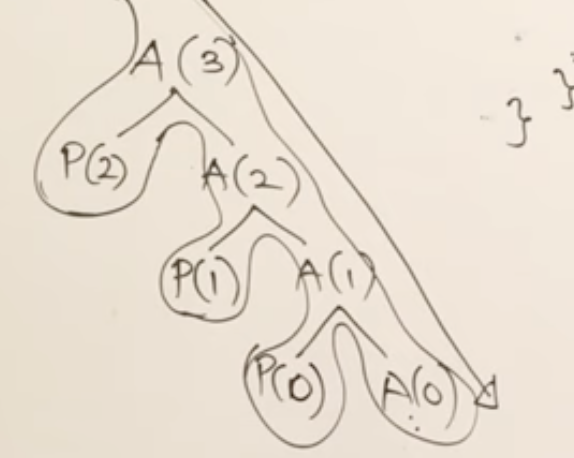 A(3)
} }
P(2) A(2)
P(1) A(1)
P(0) A(0)